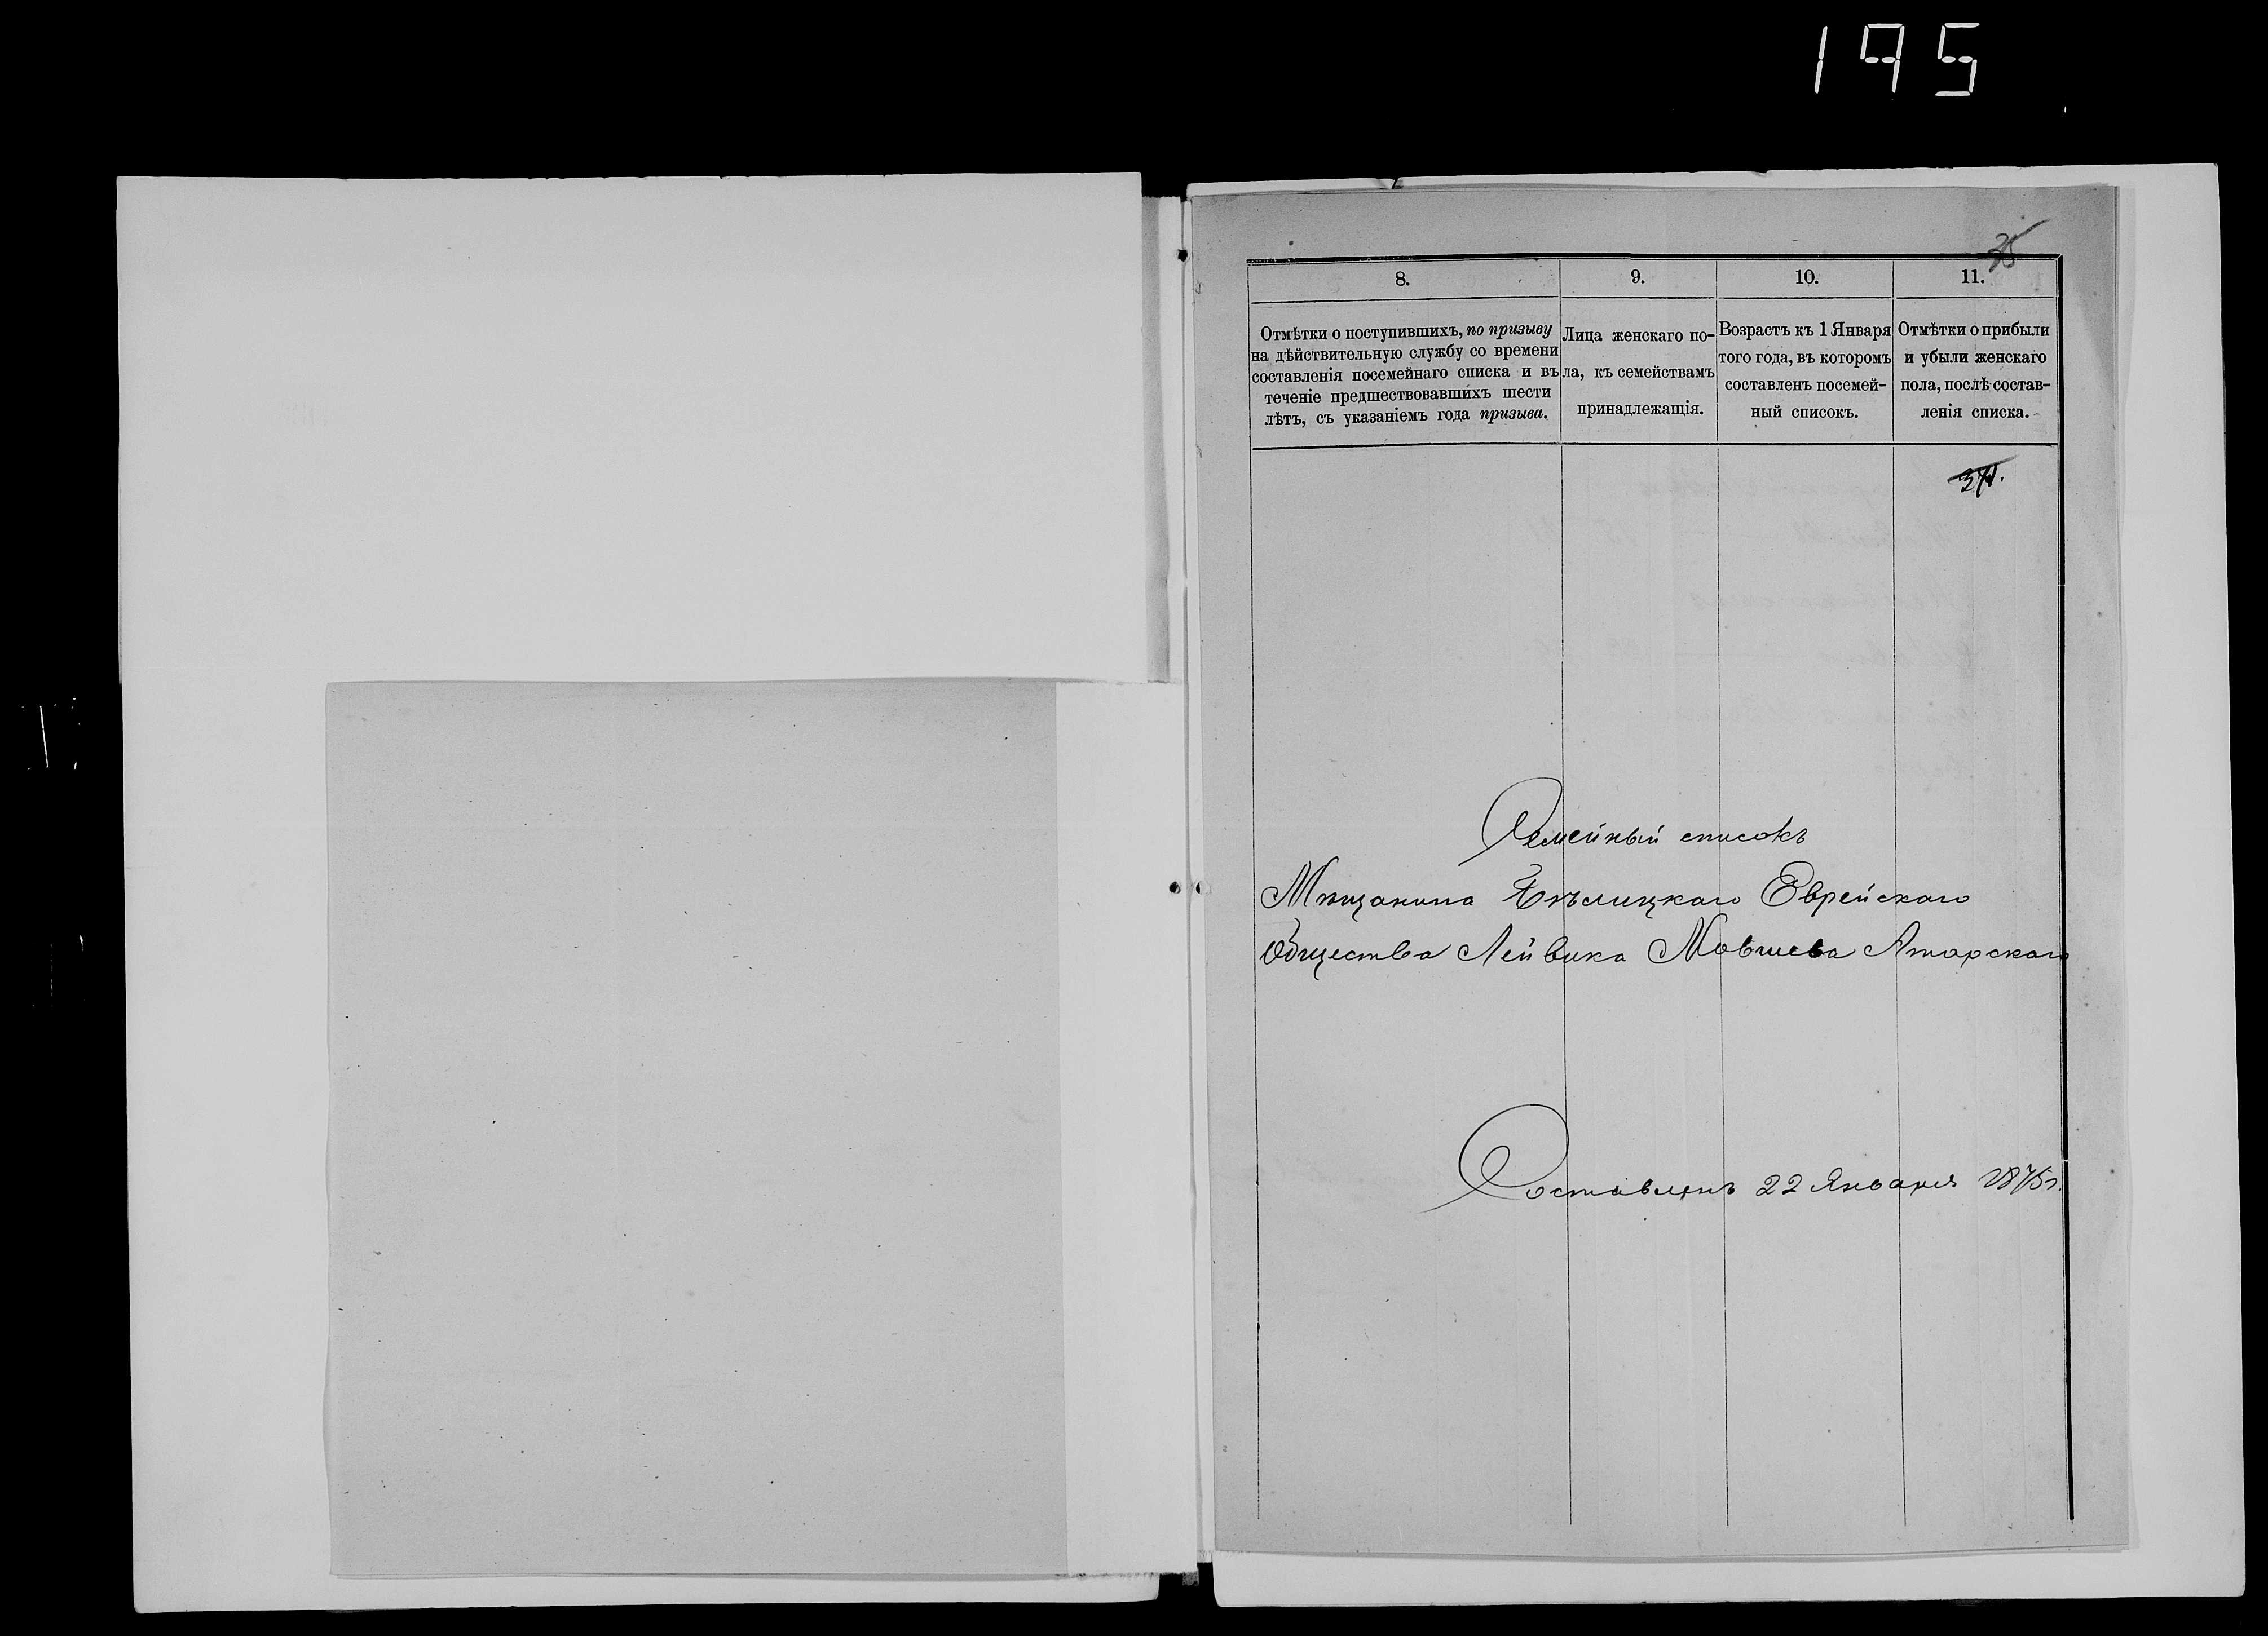 195
35
8.
9.
10.
11.
Отмѣтки о поступившихъ, по призыву
на дѣйствительную службу со времени
составленія посемейнаго списка и въ
теченіе предшествовавшихъ шести
лѣтъ, съ указаніемъ года призыва.
Лица женскаго по-
ла, къ семействамъ
принадлежащія.
Возрастъ къ 1 Января
того года, въ которомъ
составленъ посемей-
ный списокъ.
Отмѣтки о прибыли
и убыли женскаго
пола, послѣ состав-
ленія списка.
Семейный списокъ
Мѣщанина Бѣлицкаго Еврейскаго
Общества Лейвика Мовшева Атарскаго
Составленъ 22 Января 1875 г.